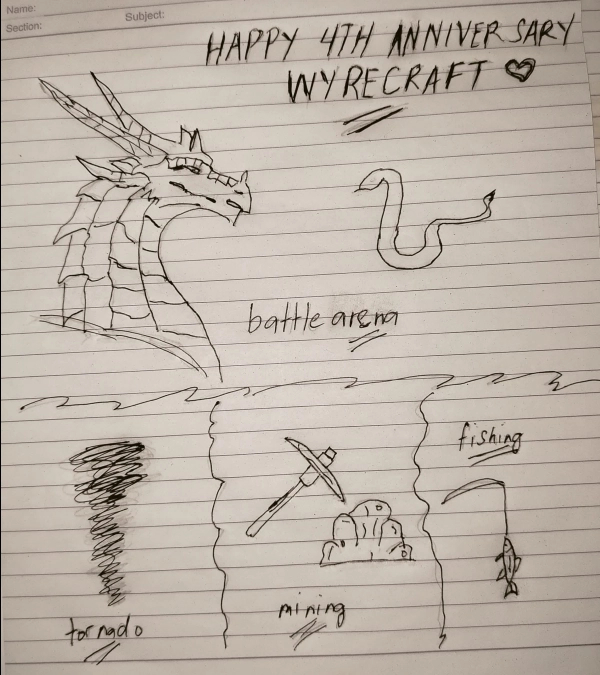 Name:
Subject:
Section:
HAPPY 4TH ANNIVERSARY
WYRECRAFT
battle arena
fishing
mining
tornado